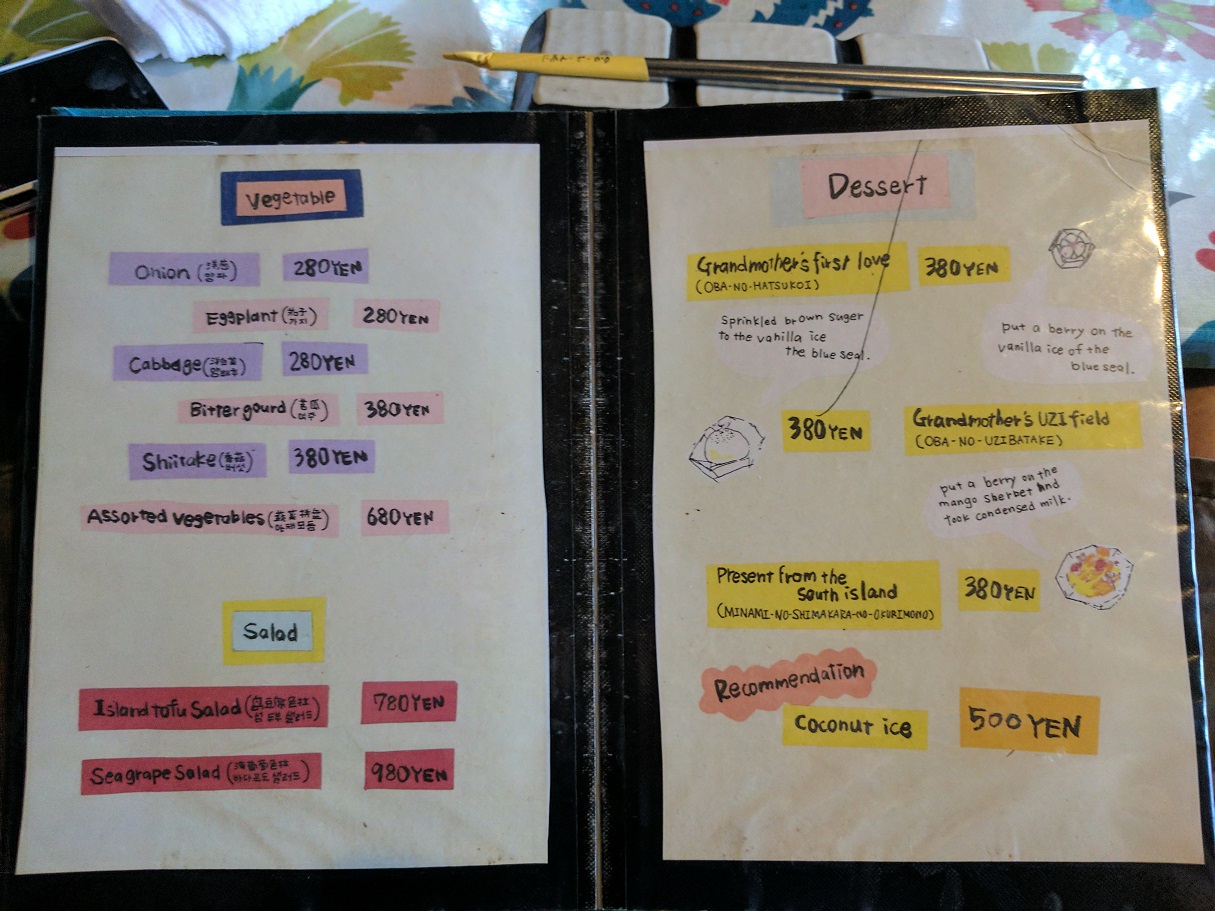 Vegetable
Onion (洋葱 양파) 280YEN
Eggplant (茄子 가지) 280YEN
Cabbage (洋白菜 양배추) 280YEN
Bitter gourd (苦瓜 여주) 380YEN
Shiitake (香菇 버섯) 380YEN
Assorted vegetables (蔬菜拼盘 야채모듬) 680YEN
Salad
Island tofu Salad (岛豆腐色拉 섬 두부 샐러드) 780YEN
Sea grape Salad (海葡萄色拉 바다포도 샐러드) 980YEN
Dessert
Grandmother's first love 380YEN
(OBA-NO-HATSUKOI)
Sprinkled brown suger
to the vanilla ice
the blue seal.
put a berry on the
vanilla ice of the
blue seal.
380YEN Grandmother's UZI field
(OBA-NO-UZIBATAKE)
put a berry on the
mango sherbet and
took condensed milk.
Present from the
south island 380YEN
(MINAMI-NO-SHIMAKARA-NO-OKURIMONO)
Recommendation
Coconut ice 500YEN